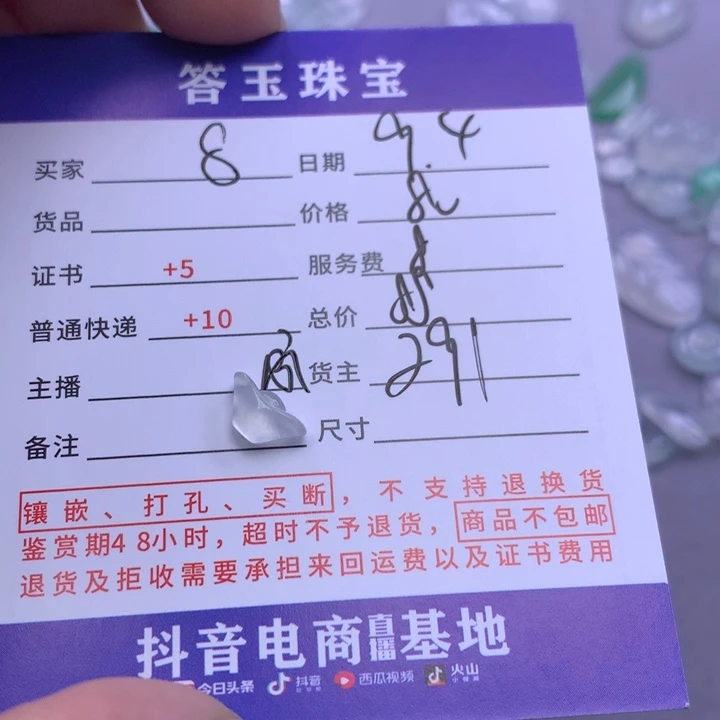 答玉珠宝
买家 8 日期 9.4
货品 价格
证书 +5 服务费
普通快递 +10 总价
主播 货主 291
备注 尺寸
镶嵌、打孔、买断，不支持退换货
鉴赏期48小时，超时不予退货，商品不包邮
退货及拒收需要承担来回运费以及证书费用
抖音电商直播基地
今日头条 抖音 西瓜视频 火山